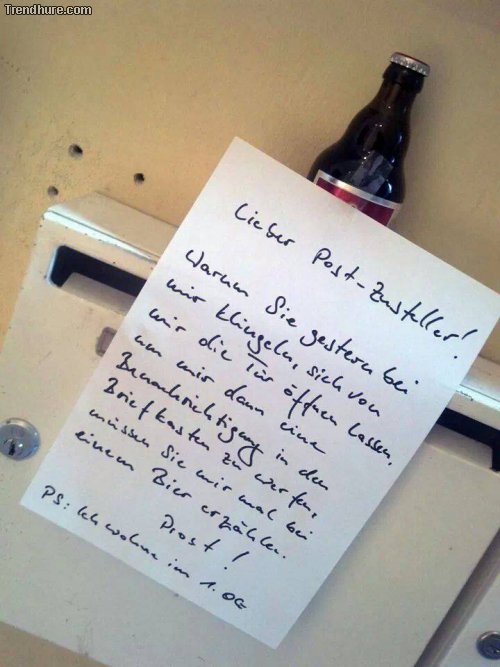 Trendhure.com
Lieber Post-Zusteller!
Warum Sie gestern bei
mir klingeln, sich von
mir die Tür öffnen lassen,
um mir dann eine
Benachrichtigung in den
Briefkasten zu werfen,
müssen Sie mir mal bei
einem Bier erzählen.
Prost!
PS: Ich wohne im 1. OG